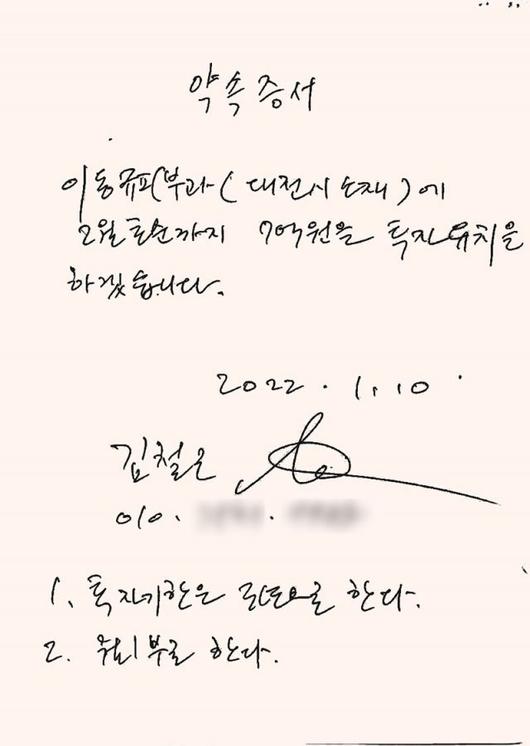 약속증서
이동규피부과(대전시 소재)에
2월초순까지 7억원을 투자유치을
하겠습니다.
2022. 1. 10
김철근
010.
1. 투자기한은 10년으로 한다.
2. 월 부로 한다.